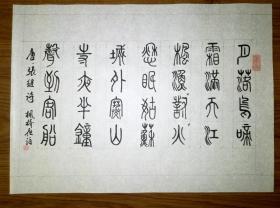 月落烏啼
霜滿天江
楓漁對火
愁眠姑蘇
城外寒山
寺夜半鐘
聲到客船
唐張繼詩 楓橋夜泊